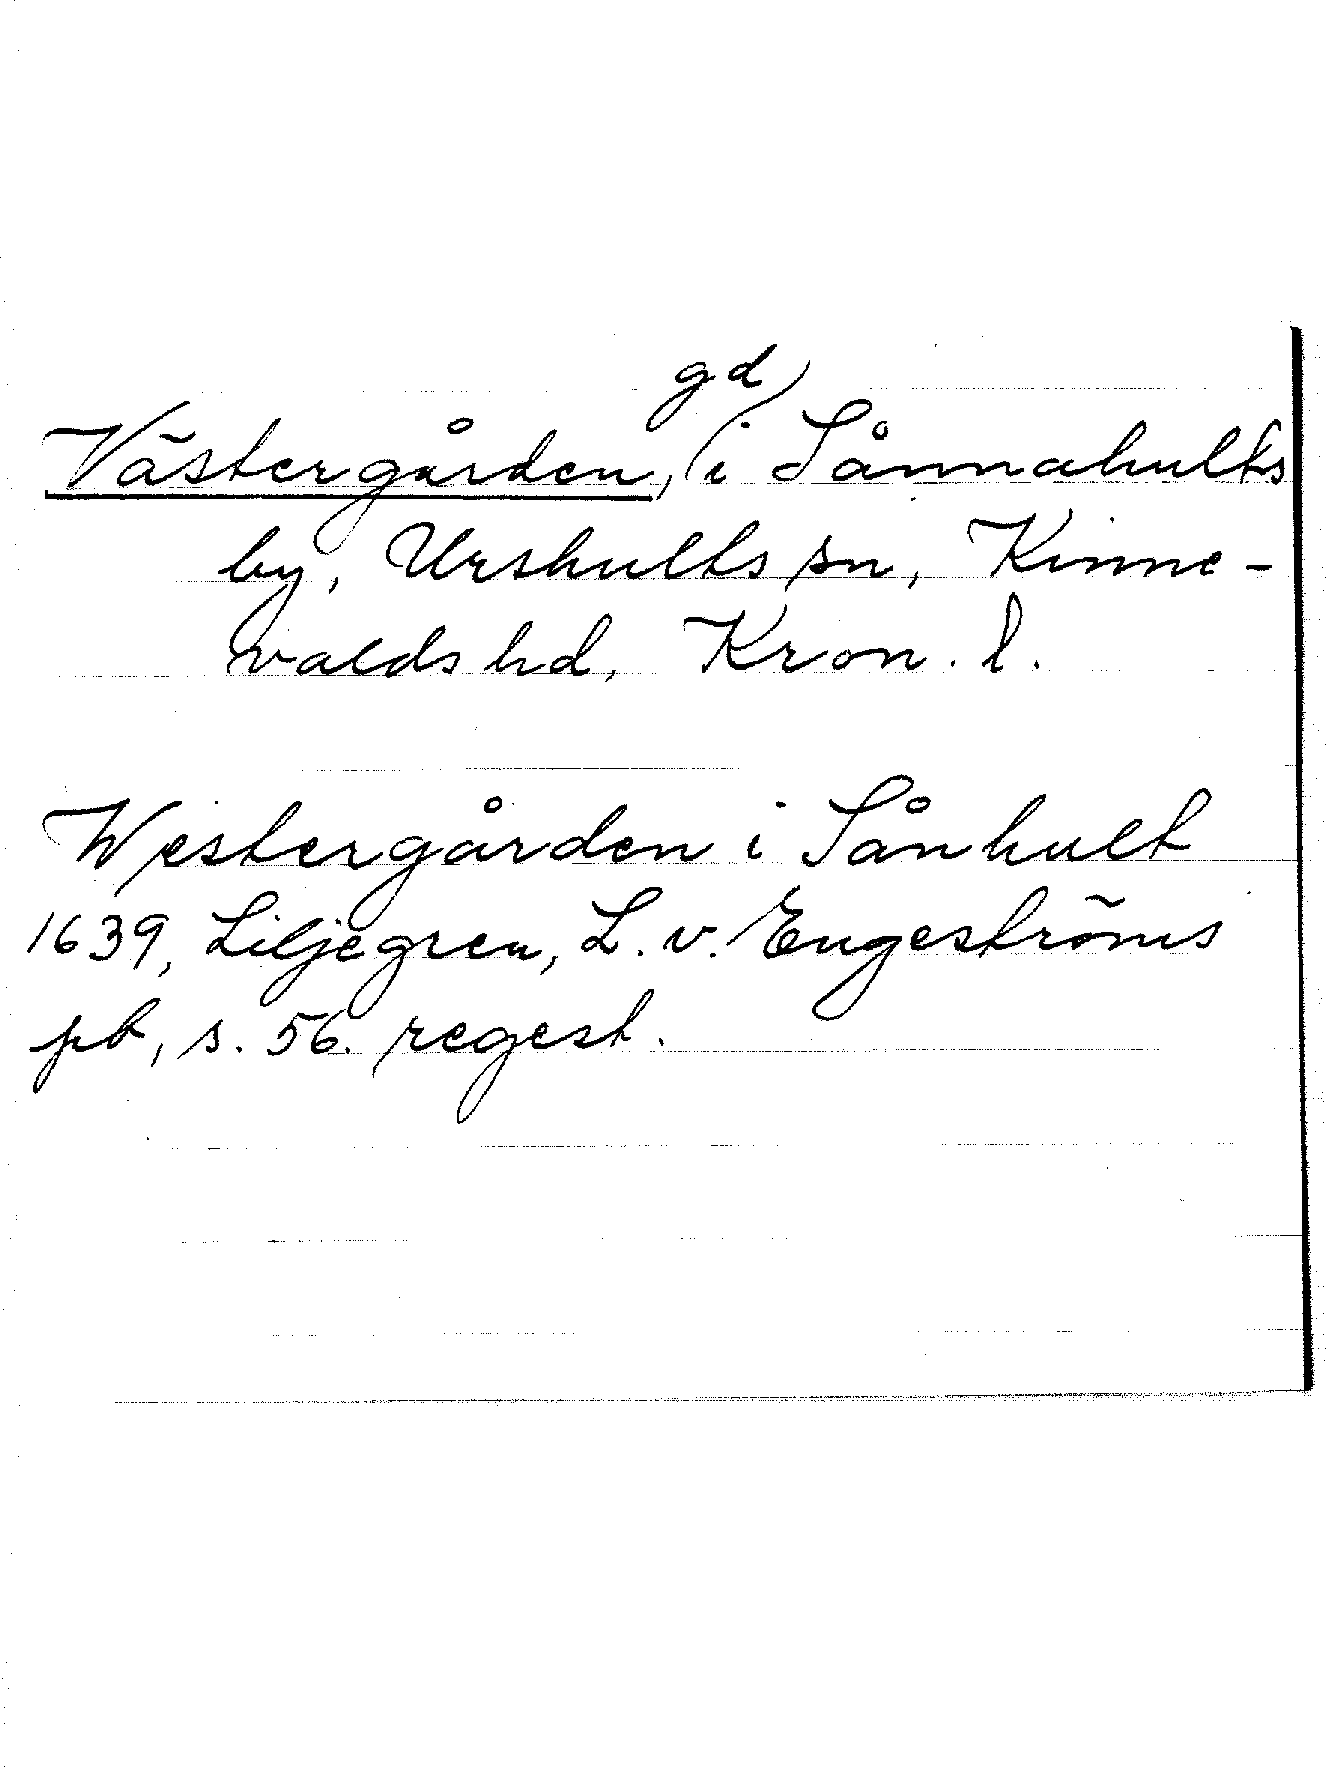 Västergården, gd i Sånnahults
by, Urshults sn, Kinne-
valds hd, Kron. l.
Westergården i Sånhult
1639, Liljegren, L. v. Engeströms
pb, s. 56. regest.